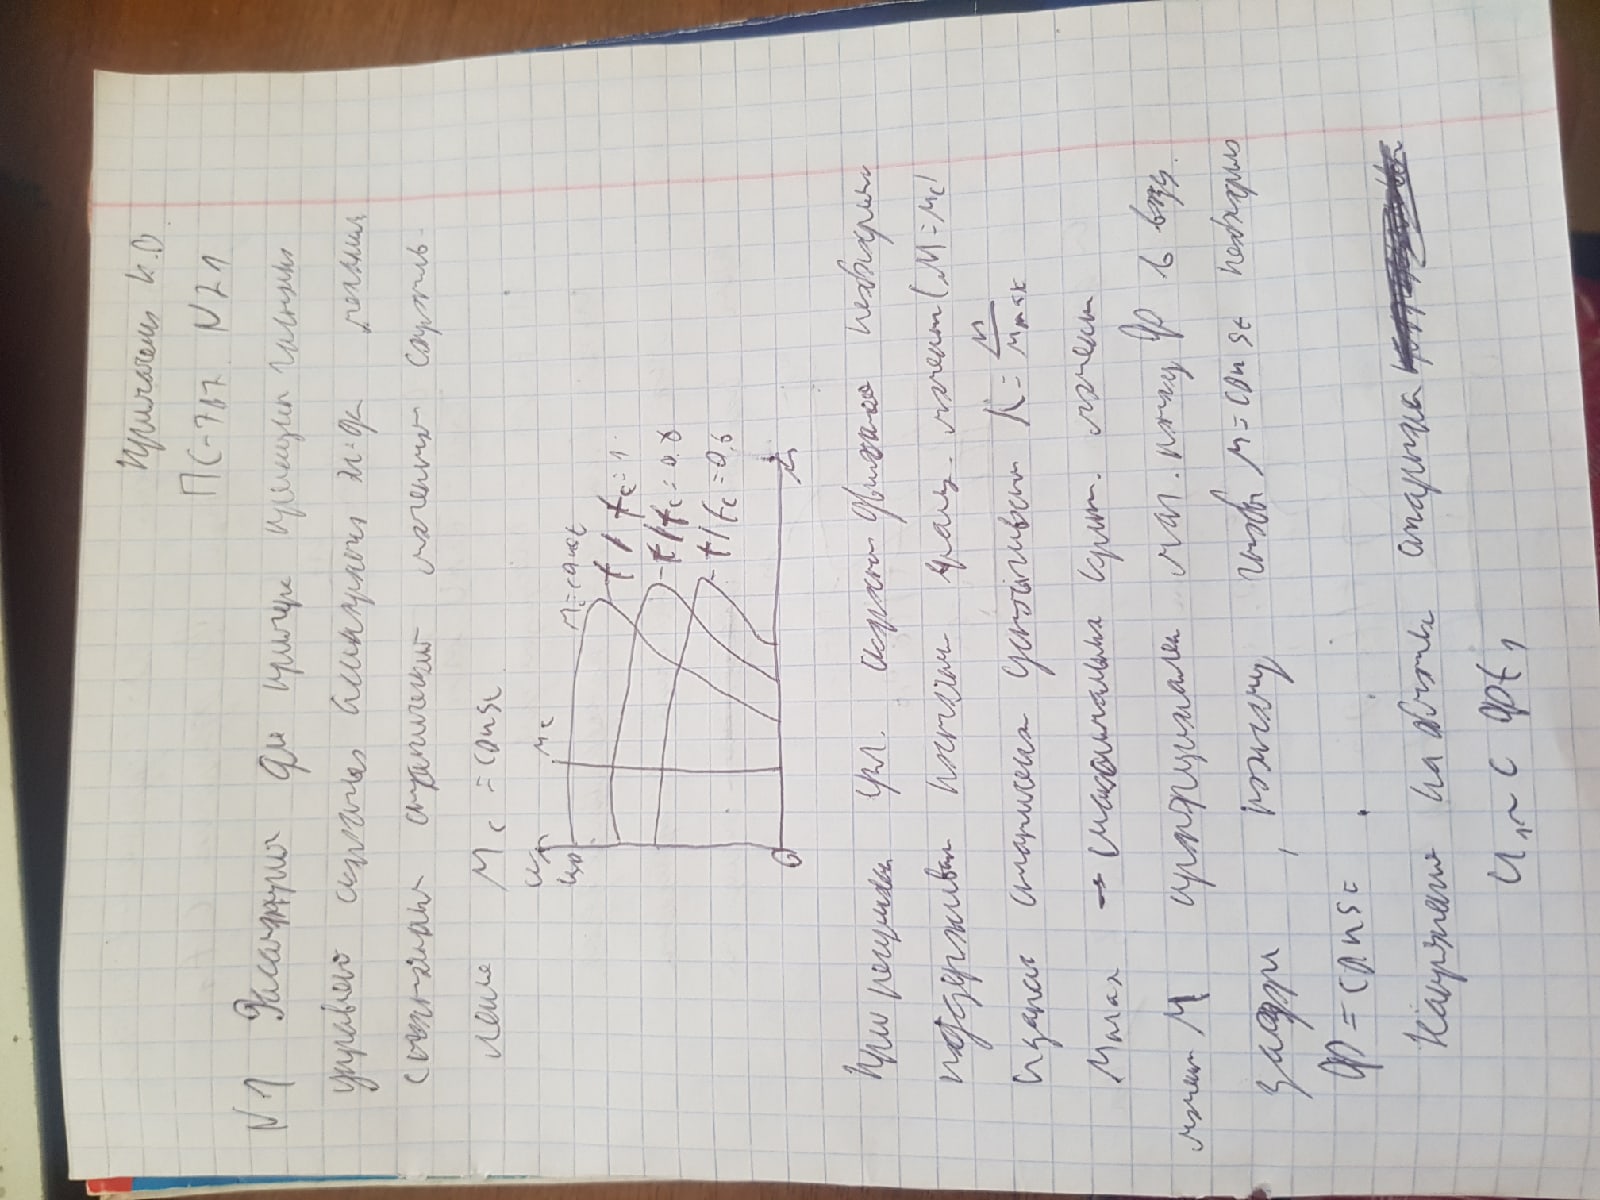 К.В.
ПС-767 N21
N1 Рассмотрим для примера принцип
управ скоростью асинхронного эл-дв
статический момент сопротив-
ления Mc = const
ω Mc
ω0 M=const
f/fc=1
f/fc=0.8
f/fc=0.6
0 M
При угл. скорости двигателя необходимо
поддерживать вращ. момент (M=Mc)
и запас статической устойчивости λ = M/Mmax
Mmax → максимальный крит. момент
момент M пропорционален маг. потоку Ф в возд.
зазоре, поэтому чтобы M=const необходимо
Ф=const.
Напряжение на обмотке статора
U1~c Фf1